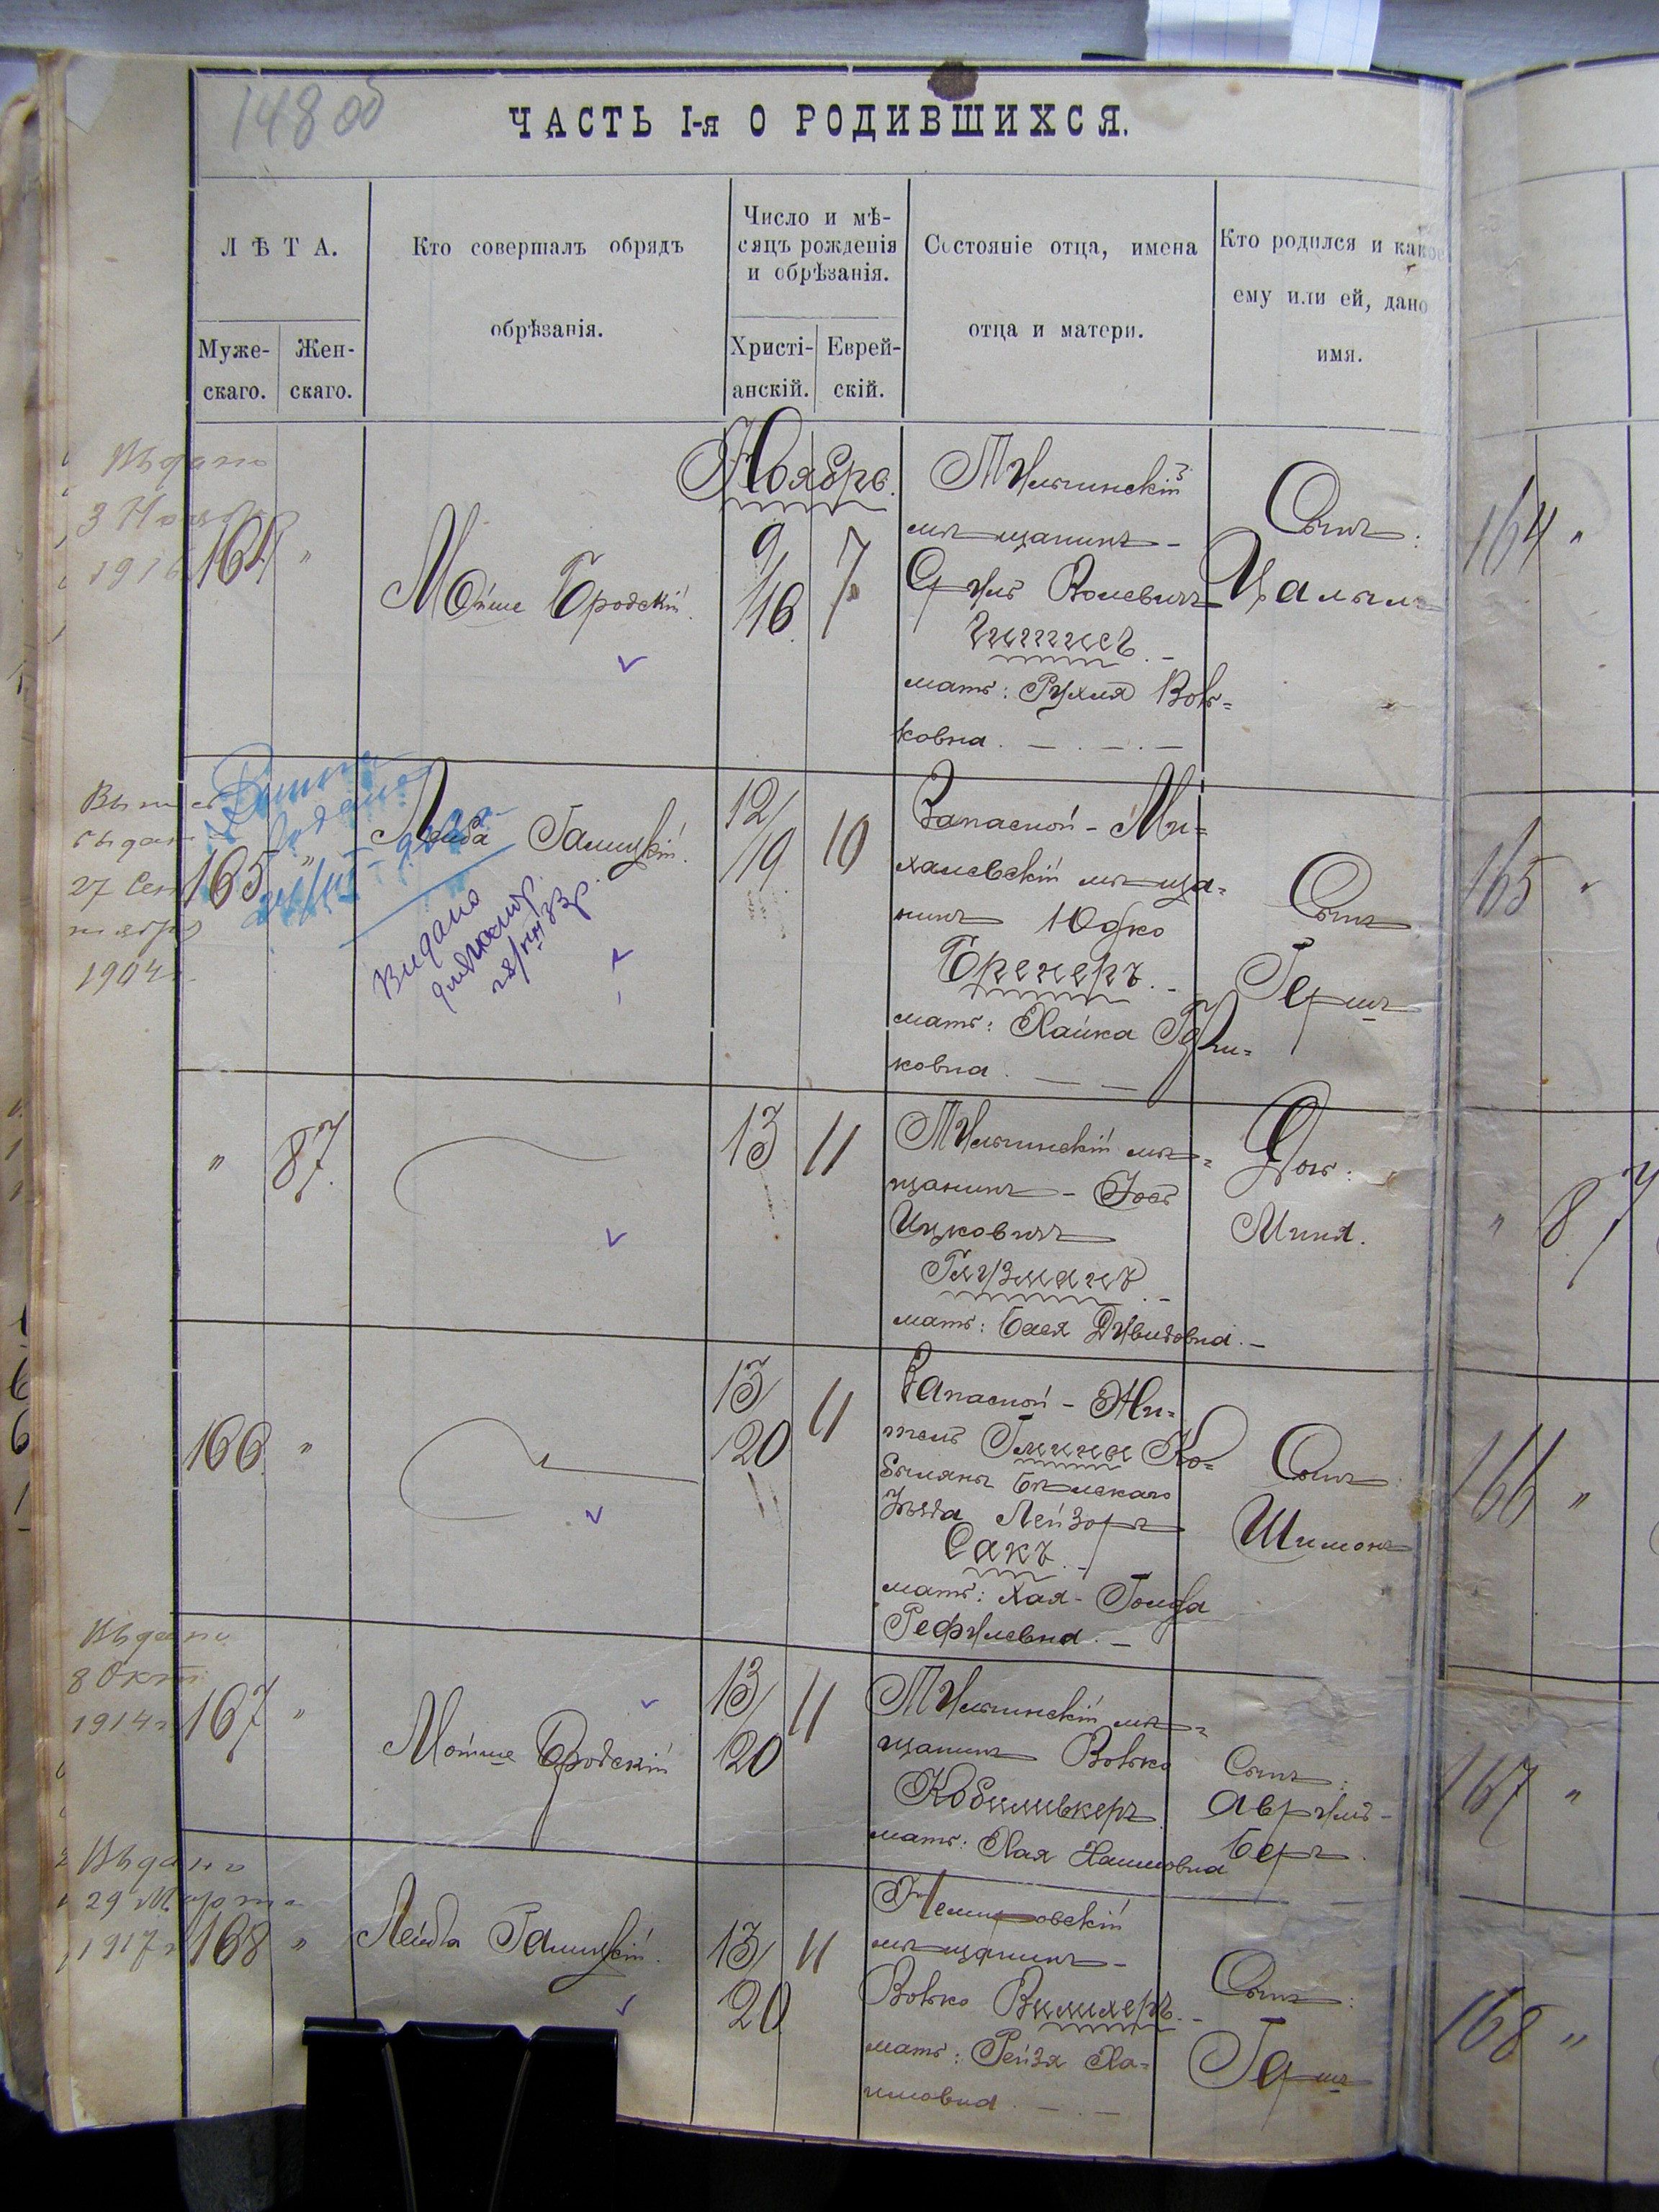 148 об
ЧАСТЬ I-я О РОДИВШИХСЯ.
ЛѢТА.
Муже-
скаго.
Жен-
скаго.
Кто совершалъ обрядъ
обрѣзанія.
Число и мѣ-
сяцъ рожденія
и обрѣзанія.
Христі-
анскій.
Еврей-
скій.
Состояніе отца, имена
отца и матери.
Кто родился и какое
ему или ей, дано
имя.
Ноябрь.
Выдано
1916
164 "
Мойше Бродскій.
9/16
7
Тульчинскій
мѣщанинъ -
Сруль Волевичъ
мать: Рухля Воль=
ковна.
Сынъ:
164 "
27 Сен
тября
1904 г.
165 "
Лейба Галицкій.
Видано
12/19
10
Запасной - Ми=
халевскій мѣща=
нинъ Юдко
Бренеръ. -
мать: Хайка Герш=
ковна.
Сынъ
Гершъ
165 "
" 87.
13
11
Тульчинскій мѣ=
щанинъ - Іось
Ицковичъ
Глузманъ. -
мать: Бася Дувидовна. -
Дочь:
Миня.
" 87
166 "
13/20
11
Запасной - Жи=
тель Гмины Ко=
быляны Бѣльскаго
Уѣзда Лейзоръ
Сакъ. -
мать: Хая - Гольда
Рефулевна. -
Сынъ:
Шимонъ
166 "
Выдано
8 Окт
1914 г
167 "
Мойше Бродскій
13/20
11
Тульчинскій мѣ=
щанинъ Волько
Кобыливкеръ.
мать: Хая Наимовна
Сынъ:
Аврумъ -
Беръ.
167 "
Выдано
29 Марта
1917 г
168 "
Лейба Галицкій.
13/20
11
Немировскій
мѣщанинъ -
Волько Вилихеръ. -
мать: Рейзя Ха=
имовна.
Сынъ:
Гершъ
168 "